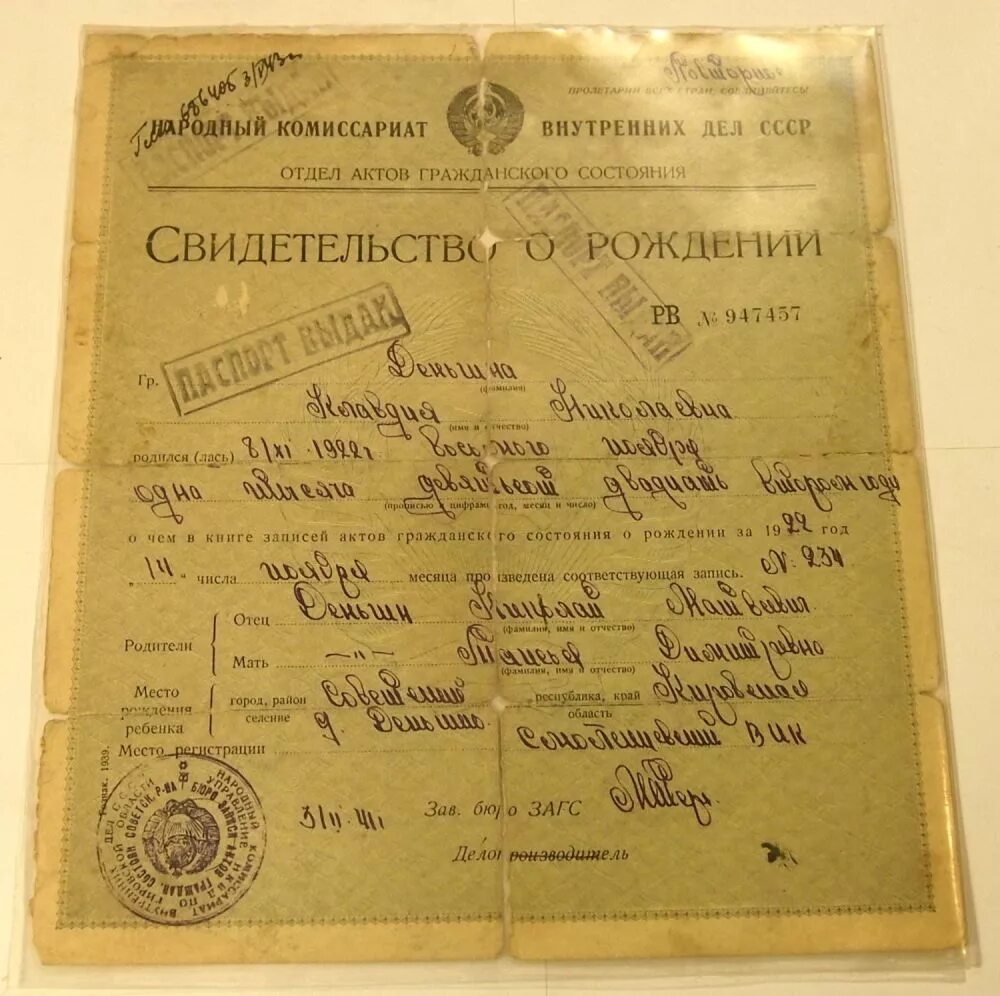 Повторно
ПРОЛЕТАРИИ ВСЕХ СТРАН, СОЕДИНЯЙТЕСЬ
НАРОДНЫЙ КОМИССАРИАТ ВНУТРЕННИХ ДЕЛ СССР
ОТДЕЛ АКТОВ ГРАЖДАНСКОГО СОСТОЯНИЯ
СВИДЕТЕЛЬСТВО О РОЖДЕНИИ
ПАСПОРТ ВЫДАН
РВ № 947457
ПАСПОРТ ВЫДАН
Гр. Деньгина
(фамилия)
Клавдия Николаевна
(имя и отчество)
родился (лась) 8/XI-1922г восьмого ноября
одна тысяча девятьсот двадцать втором году
(прописью и цифрами год, месяц и число)
о чем в книге записей актов гражданского состояния о рождении за 1922 год
"14" числа ноября месяца произведена соответствующая запись. № 234
Родители
Отец Деньгин Матвевич
(фамилия, имя и отчество)
Мать —"— Димитревно
(фамилия, имя и отчество)
Место рождения ребенка
город, район Советский республика, край Кировская
селение д. Деньгино область
Место регистрации ВИК
Гознак. 1939.
3/II-41г Зав. бюро ЗАГС
Делопроизводитель
НАРОДНЫЙ КОМИССАРИАТ ВНУТРЕННИХ ДЕЛ С.С.С.Р.
УПРАВЛЕНИЕ НКВД ПО КИРОВСКОЙ ОБЛАСТИ
БЮРО ЗАПИСИ АКТОВ ГРАЖДАН. СОСТОЯН СОВЕТСК. Р-НА